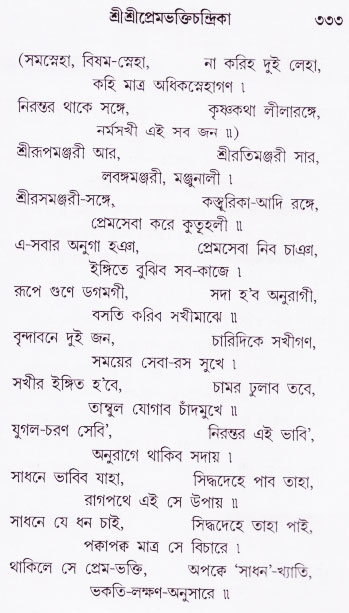 শ্রীশ্রীপ্রেমভক্তিচন্দ্রিকা ৩৩৩
(সমস্নেহা, বিষম-স্নেহা, না করিহ দুই লেহা,
কহি মাত্র অধিকস্নেহাগণ ।
নিরন্তর থাকে সঙ্গে, কৃষ্ণকথা লীলারঙ্গে,
নর্মসখী এই সব জন ॥)
শ্রীরূপমঞ্জরী আর, শ্রীরতিমঞ্জরী সার,
লবঙ্গমঞ্জরী, মঞ্জুনালী ।
শ্রীরসমঞ্জরী-সঙ্গে, কস্তুরিকা-আদি রঙ্গে,
প্রেমসেবা করে কুতূহলী ॥
এ-সবার অনুগা হঞা, প্রেমসেবা নিব চাঞা,
ইঙ্গিতে বুঝিব সব-কাজে ।
রূপে গুণে ডগমগী, সদা হ'ব অনুরাগী,
বসতি করিব সখীমাঝে ॥
বৃন্দাবনে দুই জন, চারিদিকে সখীগণ,
সময়ের সেবা-রস সুখে ।
সখীর ইঙ্গিত হ'বে, চামর ঢুলাব তবে,
তাম্বুল যোগাব চাঁদমুখে ॥
যুগল-চরণ সেবি', নিরন্তর এই ভাবি',
অনুরাগে থাকিব সদায় ।
সাধনে ভাবিব যাহা, সিদ্ধদেহে পাব তাহা,
রাগপথে এই সে উপায় ॥
সাধনে যে ধন চাই, সিদ্ধদেহে তাহা পাই,
পক্কাপক্ক মাত্র সে বিচারে ।
থাকিলে সে প্রেম-ভক্তি, অপক্কে 'সাধন'-খ্যাতি,
ভকতি-লক্ষণ-অনুসারে ॥